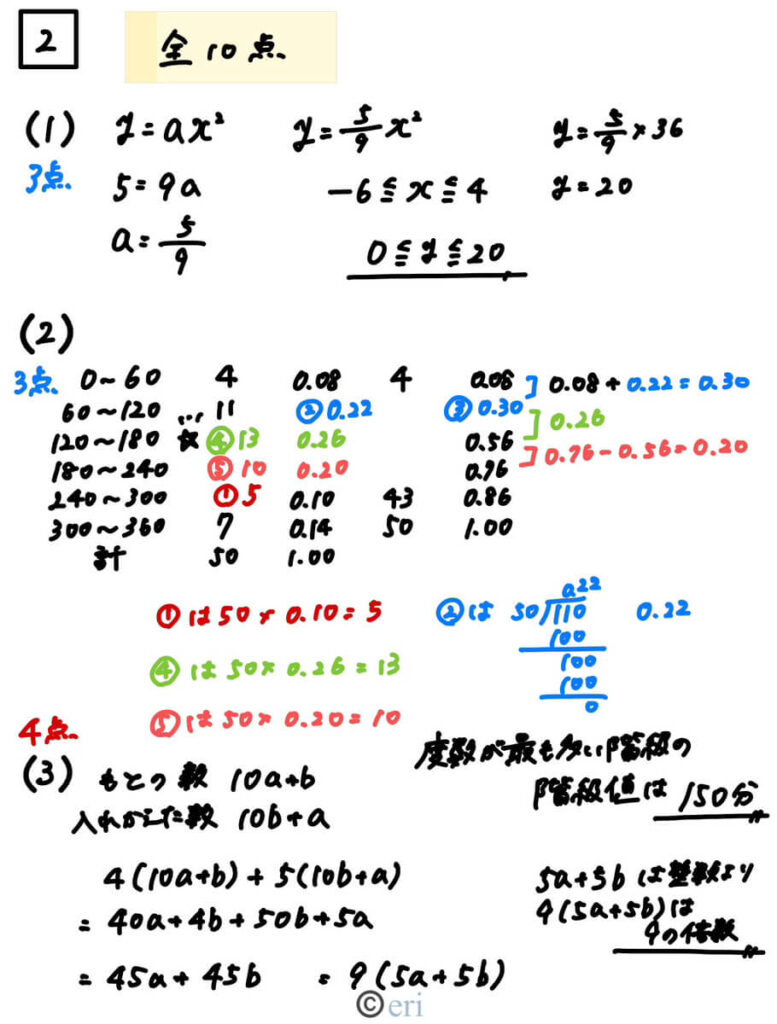 2 全10点
(1) y=ax² y=5/9x² y=5/9×36
3点 5=9a -6≦x≦4 y=20
a=5/9 0≦y≦20
(2)
3点 0~60 4 0.08 4 0.08 ] 0.08+0.22=0.30
60~120 … 11 ②0.22 ③0.30 ] 0.26
120~180 ☆ ④13 0.26 0.56
180~240 ⑤10 0.20 0.76 ] 0.76-0.56=0.20
240~300 ①5 0.10 43 0.86
300~360 7 0.14 50 1.00
計 50 1.00
①は50×0.10=5
②は 50)110 0.22
0.22
100
100
100
0
④は50×0.26=13
⑤は50×0.20=10
度数が最も多い階級の
階級値は 150分
4点
(3) もとの数 10a+b
入れかえた数 10b+a
4(10a+b)+5(10b+a)
=40a+4b+50b+5a
=45a+45b =9(5a+5b)
5a+5bは整数より
9(5a+5b)は
9の倍数
©eri